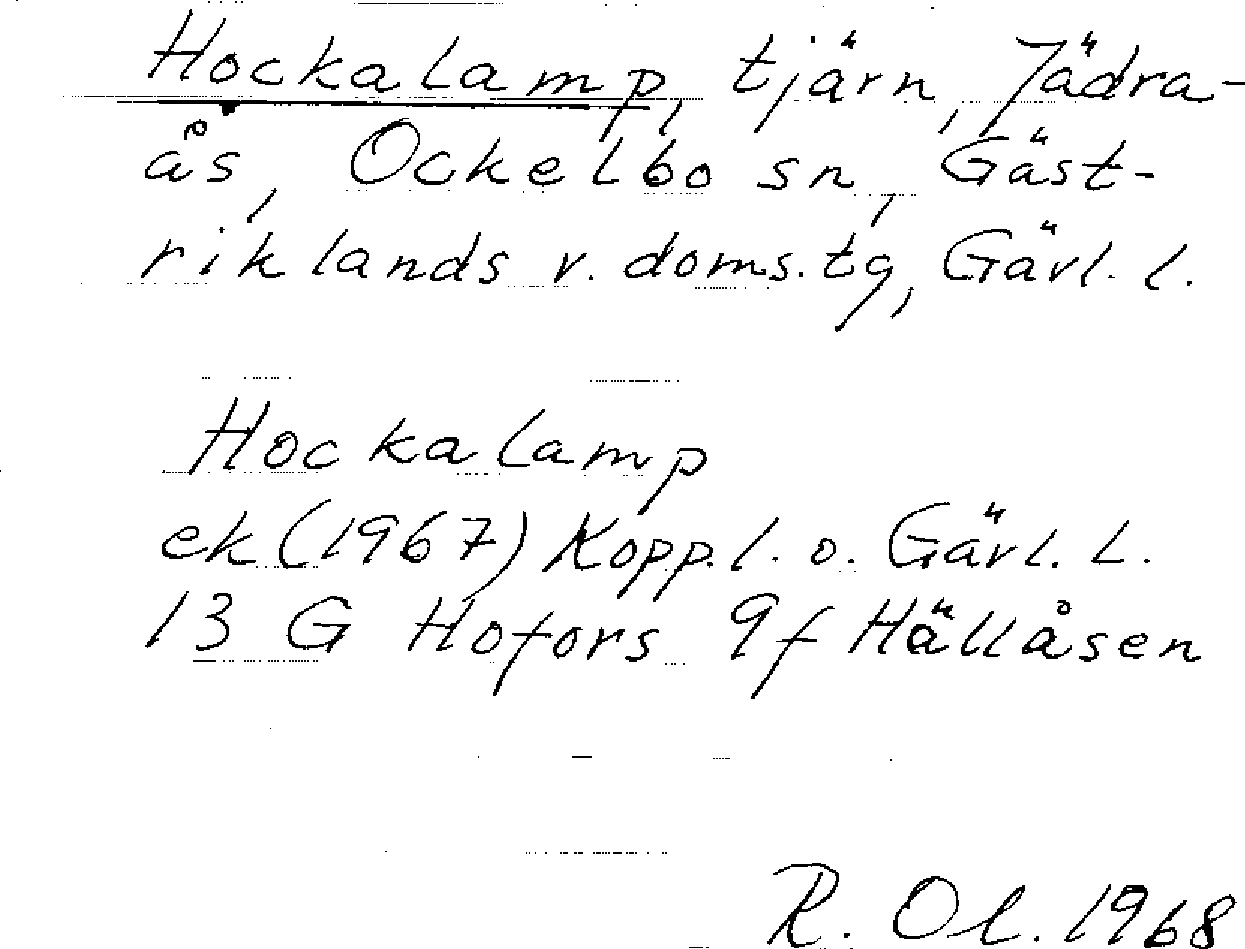 Hockalamp, tjärn, Jädra-
ås, Ockelbo sn, Gäst-
riklands v. doms.tg, Gävl. l.
Hockalamp
ek (1967) Kopp.l. o. Gävl. L.
13 G Hofors 9f Hällåsen
R. Ol. 1968